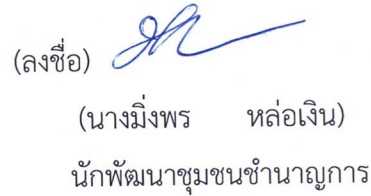 (ลงชื่อ)
(นางมิ่งพร หล่อเงิน)
นักพัฒนาชุมชนชำนาญการ